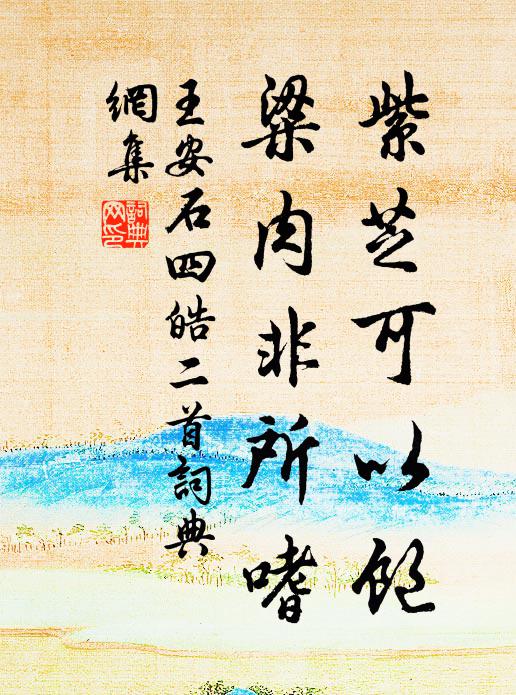 紫芝可以飽
梁肉非所嗜
王安石四皓二首詞典
網集
詞典網印